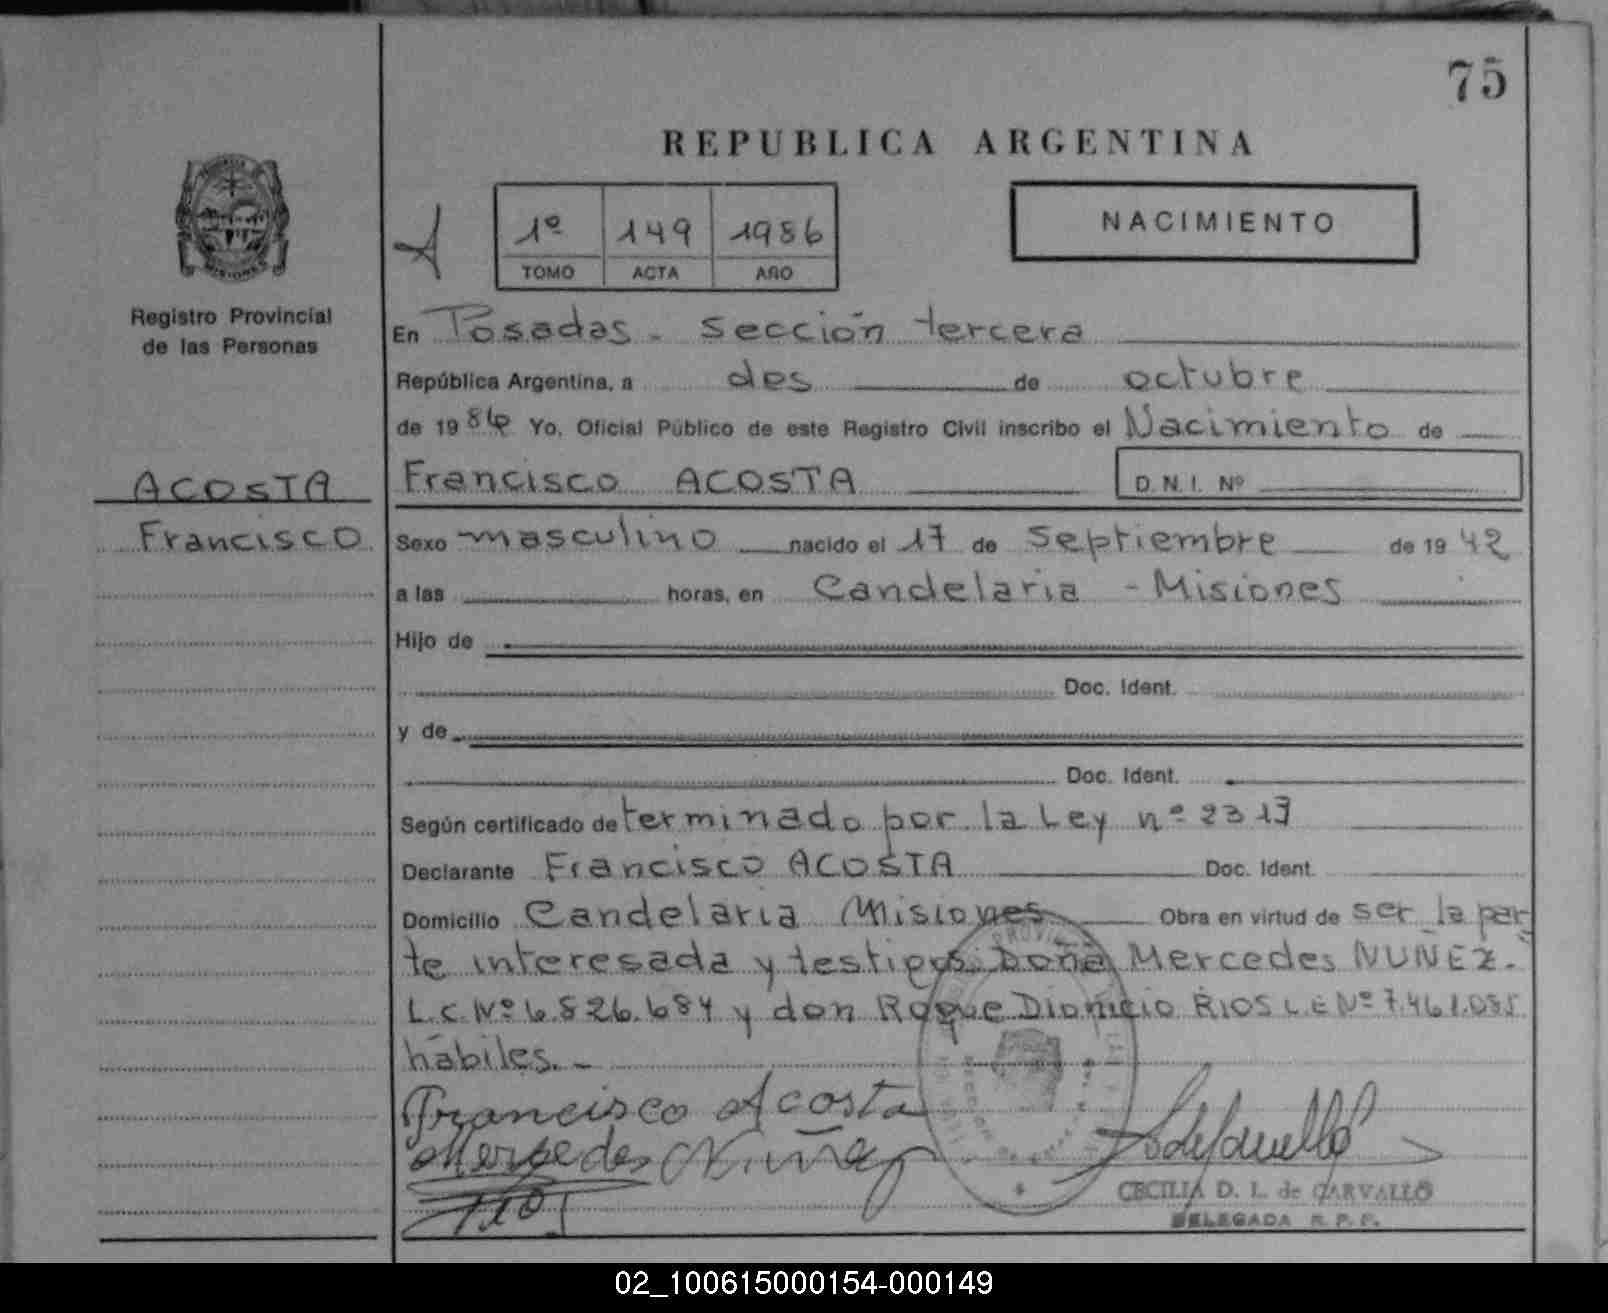 75
REPUBLICA ARGENTINA
MISIONES
Registro Provincial
de las Personas
1º 149 1986
TOMO ACTA AÑO
NACIMIENTO
En Posadas - Sección tercera
República Argentina, a dos de octubre
de 1986 Yo, Oficial Público de este Registro Civil inscribo el Nacimiento de
ACOSTA
Francisco
Francisco ACOSTA D. N. I. Nº
Sexo masculino nacido el 17 de Septiembre de 1942
a las horas, en Candelaria - Misiones
Hijo de
Doc. Ident.
y de
Doc. Ident.
Según certificado determinado por la Ley nº 2317
Declarante Francisco ACOSTA Doc. Ident.
Domicilio Candelaria Misiones Obra en virtud de ser la par-
te interesada y testigos Doña Mercedes NUÑEZ.
L.C. Nº 6.826.684 y don Roque Dionicio RIOS L.E Nº 7.461.085
hábiles. -
Francisco Acosta
Mercedes Nuñez
CECILIA D. L. de CARVALLO
DELEGADA R. P. P.
02_100615000154-000149